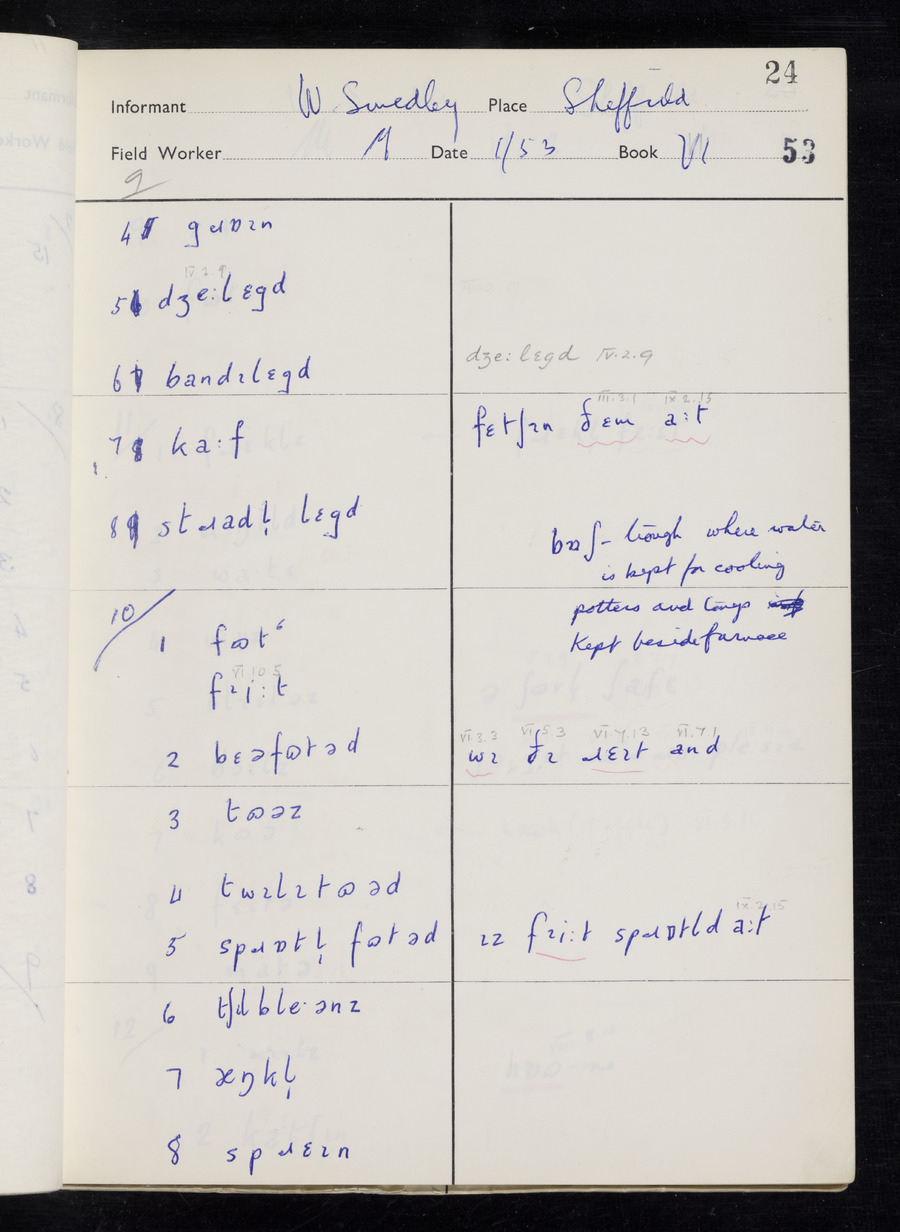 24
Informant W Smedley Place Sheffield
Field Worker M Date 1/53 Book VI 53
9
4 gɹɒɪn
IV.2.9
5 dʒe:lɛgd
6 bandɪlɛgd
7 ka:f
8 stɹadl̩ lɛgd
10/
1 fɷt
VI.10.5
fɪi:t
2 bɛəfɷtəd
3 tɷəz
4 twɪlɪtɷəd
5 spɹɒtl̩ fɷtəd
6 tʃɪlble·ənz
7 aŋkl̩
8 spɹɛɪn
dʒe:lɛgd IV.2.9
III.3.1 IX.2.15
fɛtʃɪn ðɛm a:t
- trough where water
is kept for cooling
potters and tongs
Kept beside furnace
VI.3.3 VI.5.3 VI.7.13 VI.7.1
wɪ ðɪ ɹɛɪt and
IX.2.15
ɪz fɪi:t spɹɒtld a:t